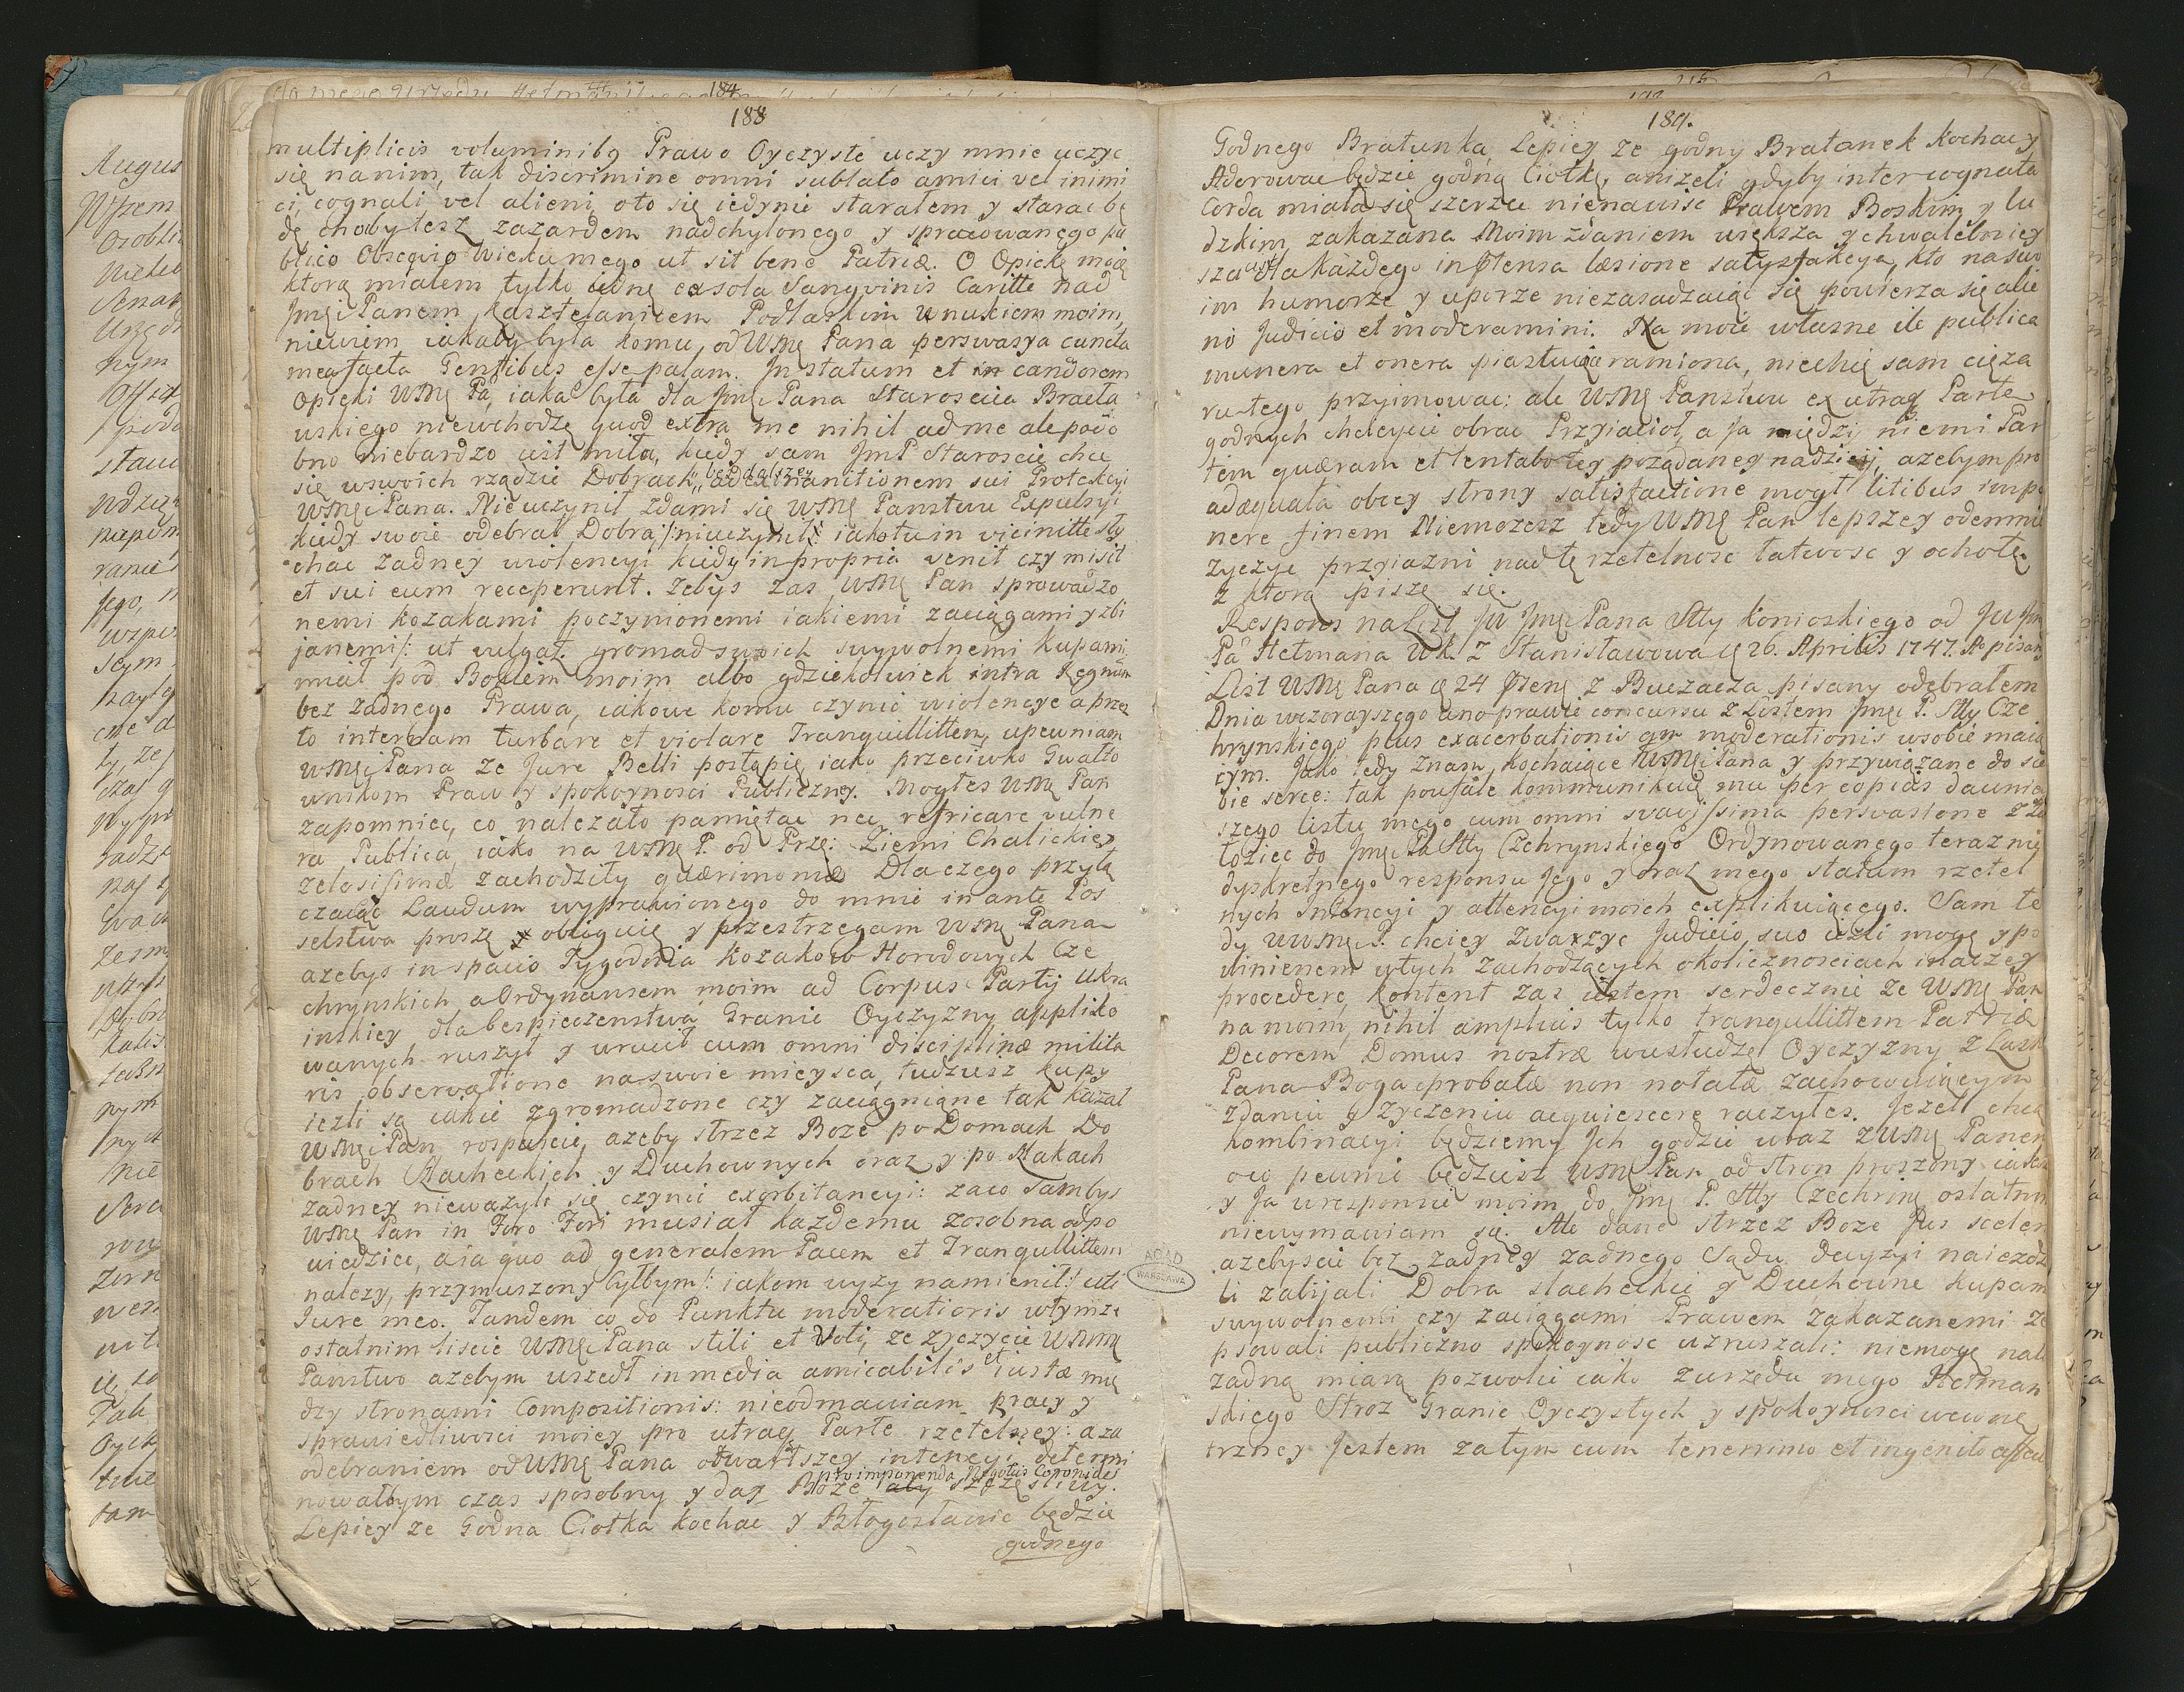 184
188
multiplicis voluminibq Prawo Oyczyste uczy mnie uczyc
się nanim, tak discrimine omni sublato amici vel inimi
ci, cognati vel alieni, oto się iedynie staralem y starac bę
dę chobytesz zazardem nadchylonego y spracowanego pu
blico Obsequio wieku mego ut sit bene Patriæ. O Opiekę moię
ktorą mialem tylko iednę exsola Sangvinis Caritte nad
Jmę Panem Kasztelanicem Podlaskim wnukiem moim,
niewiem iakaby była komu, od WMę Pana perswasya cuncta
mea facta Gentibus esse palam. In statum et in candorem
Opieki WMę Pa, iaka była dla Jmę Pana Starościca Bracła
wskiego niewchodzę quod extra me nihil ad me ale podo
bno niebardzo iest miła, kiedy sam JmP Starościc chce
się wswoich rządzić Dobrach, bez dalszey ad exinanitionem sui Protekcyi
WMę Pana. Nie uczynił zdami się WMę Panstwu Expulsyi
kiedy swoie odebrał Dobra /: nieuczynił :/ iakotu in vicinitte sły
chac zadney wiolencyi kiedy in propria venit czy misit
et sui eum receperunt. Zebys zas WMę Pan sprowadzo
nemi kozakami poczynionemi iakiemi zaciągami y zbi
janemi /: ut vulgat. gromad swoich swywolnemi kupami
miał pod Bokiem moim albo gdziekolwiek intra Regnum
bez zadnego Prawa, iakowe komu czynić wiolencye a przez
to internam turbare et violare Tranquillittem, upewniam
WMę Pana ze Jure Belli postąpię iako przeciwko Gwałto
wnikom Praw y spokoynosci Publiczney. Mogłes WMę Pan
zapomniec, co nalezało pamiętac nec refricare vulne
ra Publica, iako na WMę P. od Prze: Ziemi Chalickiey
zelosissimæ zachodziły quærimoniæ Dlaczego przyłą
czaiąc Laudum wyprawionego do mnie in ante Pos
selstwa proszę y obliguię y przestrzegam WMę Pana
azebys in spacio Tygodnia Kozakow Horodowych Cze
chrynskich a Ordynansem moim ad Corpus Partij Ukra
inskiey dla bespieczenstwa Granic Oyczyzny appliko
wanych ruszył y wrocił cum omni disciplinæ milita
ris observatione na swoie mieysca, tudziesz kupy
iezli są iakie zgromadzone czy zaciągnione tak kazał
WMę Pan rospuscic, azeby strzez Boze po Domach Do
brach Szlacheckich y Duchownych oraz y po szlakach
zadney niewazyli się czynić exorbitancyi: zaco sambys
WMę Pan in Foro Fori musiał kazdemu zosobna odpo
wiedziec, a ia quo ad generalem Pacem et Tranqullittem
nalezy, przymuszony byłbym /: iakom wyzy namienił :/ uti
Jure meo. Tandem co do Punktu moderationis wtymze
ostatnim liscie WMę Pana stili et voti, ze zyczycie WMMę
Panstwo azebym wszedł in media amicabilis et iustæ mię
dzy stronami Compositionis: nieodmawiam pracy y
sprawiedliwosci moiey pro utraq Parte rzetelney: a za
odebraniem od WMę Pana otwartszey intencyi determi
nowałbym czas sposobny y day Boze aby pro imponenda Negotiis Coponides szczęsliwy.
Lepiey ze Godna Ciotka kochac y Błogosławic będzie
godnego
189.
Godnego Bratunka, Lepiey ze godny Bratanek kochac y
Aderowac będzie godną Ciotkę, anizeli gdyby inter cognata
Corda miała się szerzec nienawisc Prawem Boskim y lu
dzkim zakazana Moim zdaniem większa y chwalebniey
sza iest dla kazdego in offensa læsione satysfakcya, kto na swo
im humorze y uporze niezasadzaiąc się powierza się alie
no Judicio et moderamini. Na moie własne ile publica
munera et onera piastuiące ramiona, niechcę sam cięza
ru tego przyimowac: ale WMę Panstwu ex utraq Parte
godnych chcieycie obrac Przyiacioł, a Ja między niemi Par
tem quæram et tentabo tey pożądaney nadzieij, azebym pro
adæquata obcey strony satisfactione mogł litibus impo
nere finem Niemozesz tedy WMę Pan lepszey odemnie
zyczyc przyiazni nad tę rzetelnosc łatwosc y ochotę
z ktorą piszę się.
Respons na List JW Jmę Pana Stty Konioskiego od JWJm
Pa Hetmana WK. z Stanisławowa ę 26. Aprilis 1747. Ao pisany
List WMę Pana ę 24 Præsę z Buczacza pisany odebrałem
Dnia wczorayszego ano prawie concursu z Listem Jmę P. Stty Cze
hrynskiego plus exacerbationis qm moderationis wsobie maią
cym. Jako tedy znam kochaiące WMę Pana y przywiązane do sie
bie serce: tak poufale kommunikuię mu per copias dawniey
szego listu mego cum omni svavissima persvasione z zo
łoziec do Jmę Pa Stty Czehrynskiego Ordynowanego teraz nię
dyskretnego responsu Jego y oraz mego statum rzetel
nych Intencyi y attencyi moich explikuiącego. Sam te
dy WWMę P. chciey zwazyc Judicio suo iezli mogę y po
winienem wtych zachodzących okolicznosciach inaczey
procedere, kontent zas iestem serdecznie ze WMę Pan
na moim nihil amplius tylko tranqullittem Patriæ
Decorem Domus nostræ wusłudze Oyczyzny z Łask
Pana Boga probatæ non notatæ zachowuiącym
zdaniu y zyczeniu acquiescere raczyłes. Jezeli chca
kombinacyi będziemy Ich godzic wraz z WMę Panem
oco pewnie będziesz WMę Pan od stron proszony iako
y Ja w responsie moim do Jmę P. Stty Czechrinę ostatnim
niewymawiam się. Ale dane strzez Boze Jus sceleri
azebyscie bez zadney zadnego Sądu decyzyi naiezdza
li zabijali Dobra slacheckie y Duchowne kupami
swywolnemi czy zaciągami Prawem zakazanemi ze
psowali publiczno spokoynosc wzruszali: niemogę nato
zadną miarą pozwolic iako zurzędu mego Hetman
skiego Stroz Granic Oyczystych y spokoynosci wewnę
trzney Jestem zatym cum tenerrimo et ingenito affectu
AGAD
WARSZAWA